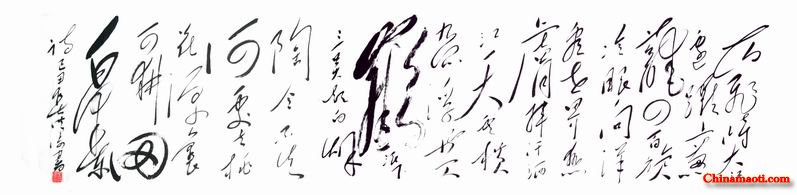 一山飞峙大江
边跃上葱
茏四百旋
冷眼向洋
看世界热
风吹雨洒
江天云横
九派浮黄
鹤浪下
三吴起白烟
陶令不知
何处去桃
花源里
可耕田
毛泽东
诗己丑年
Chinamaoti.com